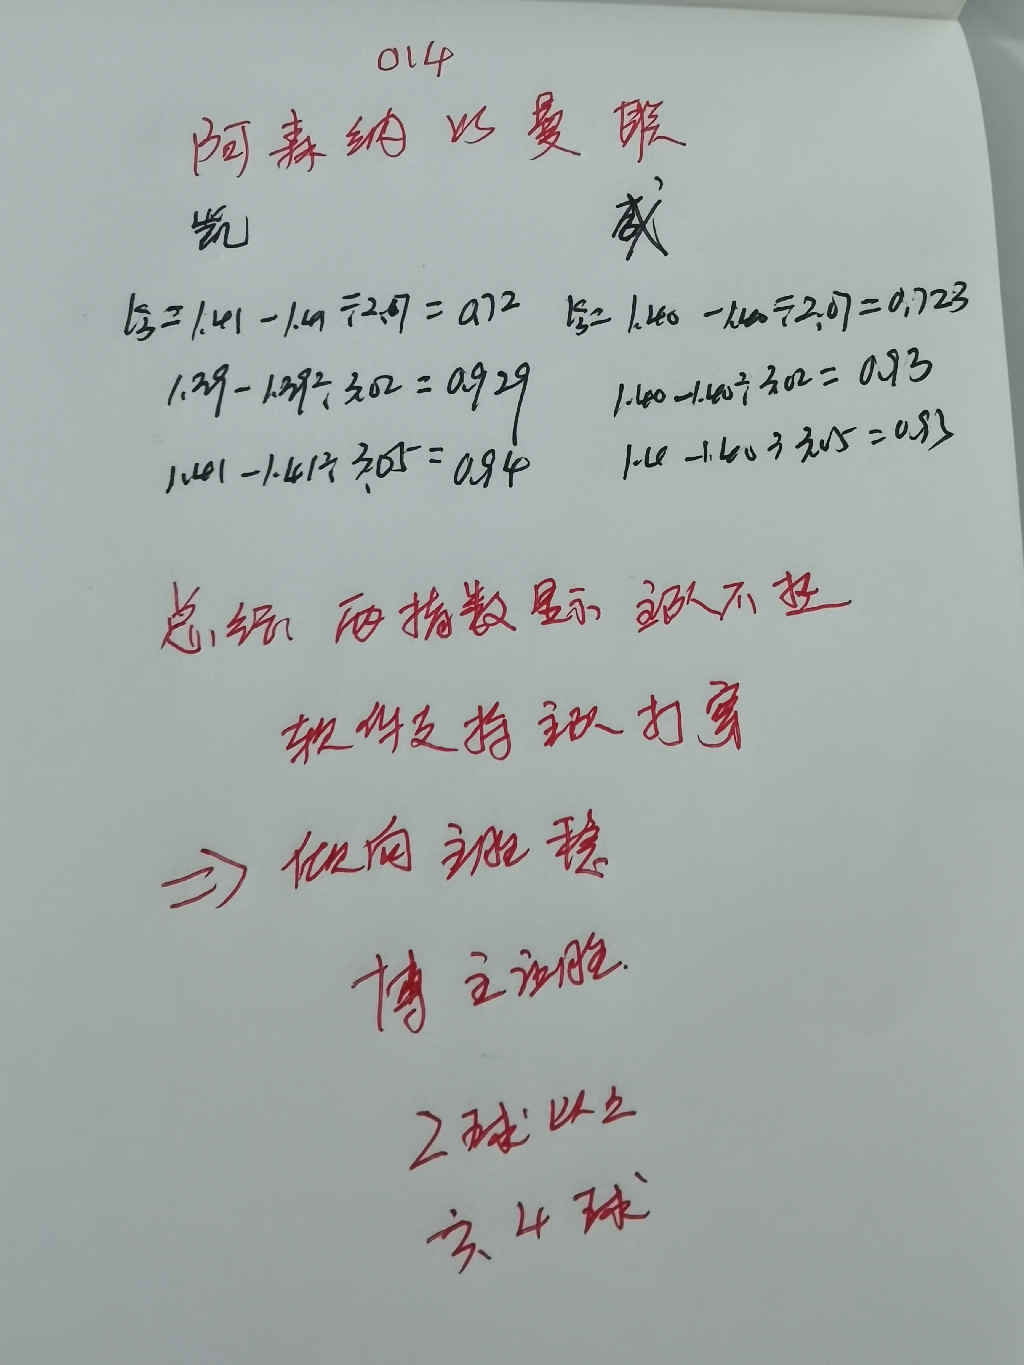 014
阿森纳 VS 曼联
凯 威
1.41-1.41÷2.07=0.72 1.40-1.40÷2.07=0.723
1.39-1.39÷3.02=0.929 1.40-1.40÷3.02=0.93
1.41-1.41÷3.05=0.94 1.40÷3.05=0.93
总结 两指数显示 主队不
软件支持 主队打穿
⇒ 倾向 主胜 稳
博 主让胜.
2球以上
4球